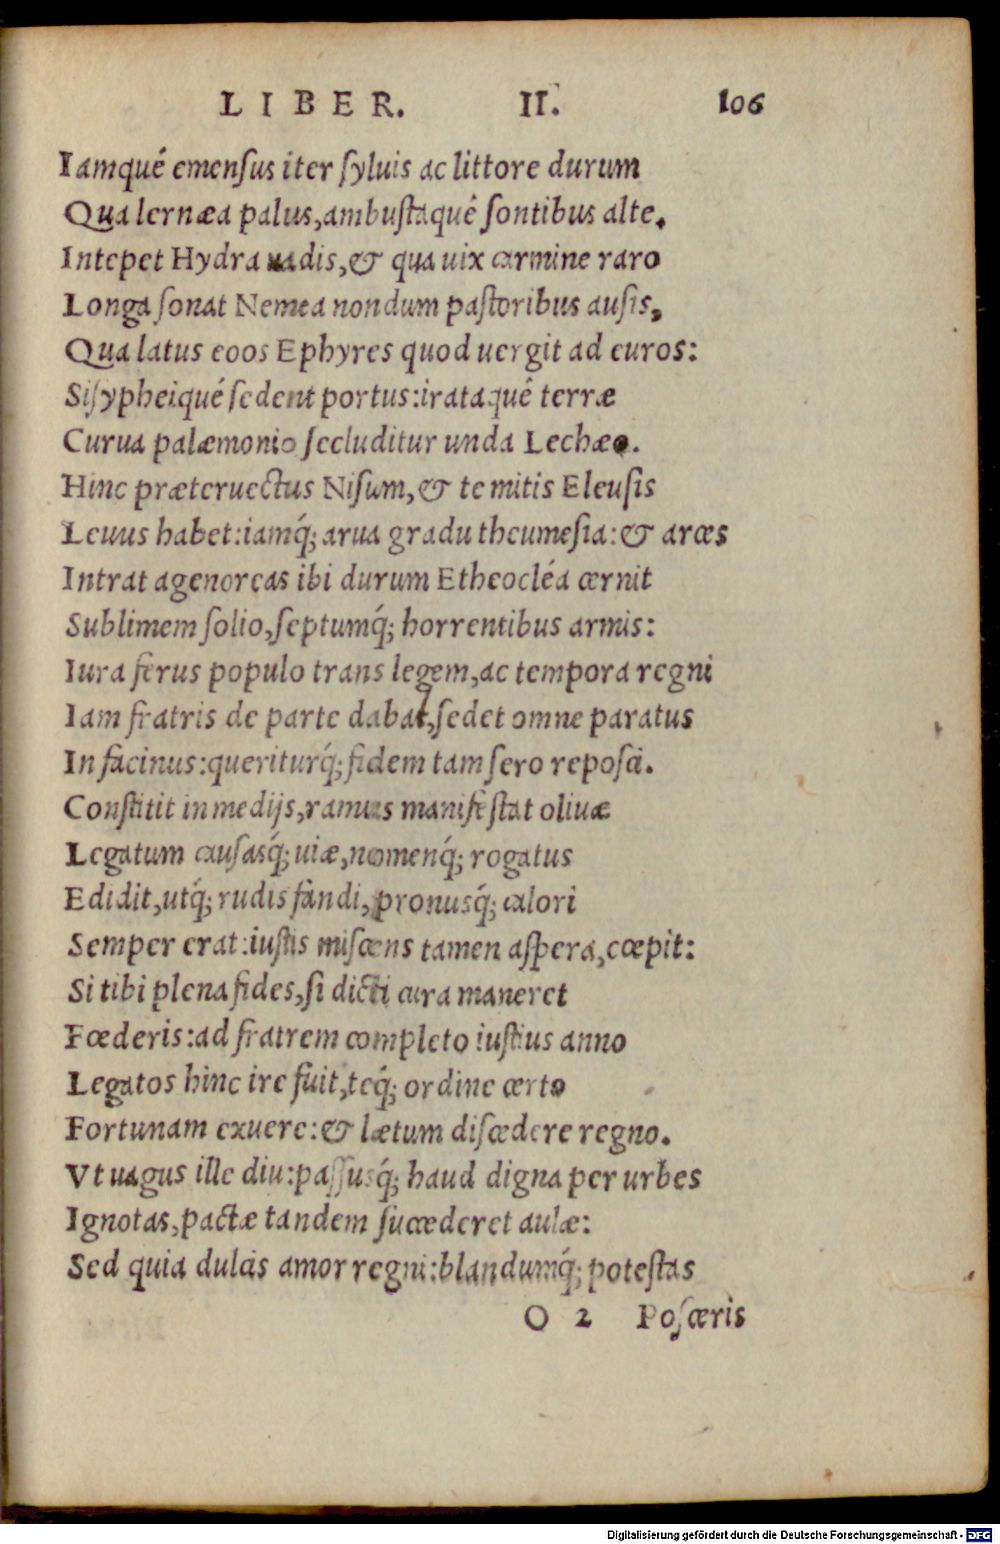 LIBER. II. 106
Iamqué emensus iter syluis ac littore durum
Qua lernæa palus, ambustaqué sontibus alte.
Intepet Hydra uadis, & qua uix carmine raro
Longa sonat Nemea nondum pastoribus ausis,
Qua latus eoos Ephyres quod uergit ad euros:
Sisypheiqué sedent portus: irataqué terræ
Curua palæmonio secluditur unda Lechæo.
Hinc præteruectus Nisum, & te mitis Eleusis
Leuus habet: iamq́; arua gradu theumesia: & arces
Intrat agenoreas ibi durum Etheocléa cernit
Sublimem solio, septumq́; horrentibus armis:
Iura ferus populo trans legem, ac tempora regni
Iam fratris de parte dabat, sedet omne paratus
In facinus: queriturq́; fidem tam sero reposci.
Constitit in medijs, ramus manifestat oliuæ
Legatum causasq́; uiæ, nomenq́; rogatus
Edidit, utq́; rudis fandi, pronusq́; calori
Semper erat: iustis miscens tamen aspera, cœpit:
Si tibi plena fides, si dicti cura maneret
Fœderis: ad fratrem completo iustius anno
Legatos hinc ire fuit, teq́; ordine certo
Fortunam exuere: & lætum discedere regno.
Vt uagus ille diu: passusq́; haud digna per urbes
Ignotas, pactæ tandem succederet aulæ:
Sed quia dulcis amor regni: blandumq́; potestas
O 2 Posceris
Digitalisierung gefördert durch die Deutsche Forschungsgemeinschaft - DFG